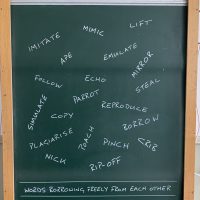 LIFT
MIMIC
IMITATE
EMULATE
APE
MIRROR
FOLLOW
ECHO
STEAL
PARROT
SIMULATE
REPRODUCE
COPY
BORROW
PLAGIARISE
POACH
PINCH
CRIB
NICK
RIP-OFF
WORDS BORROWING FREELY FROM EACH OTHER